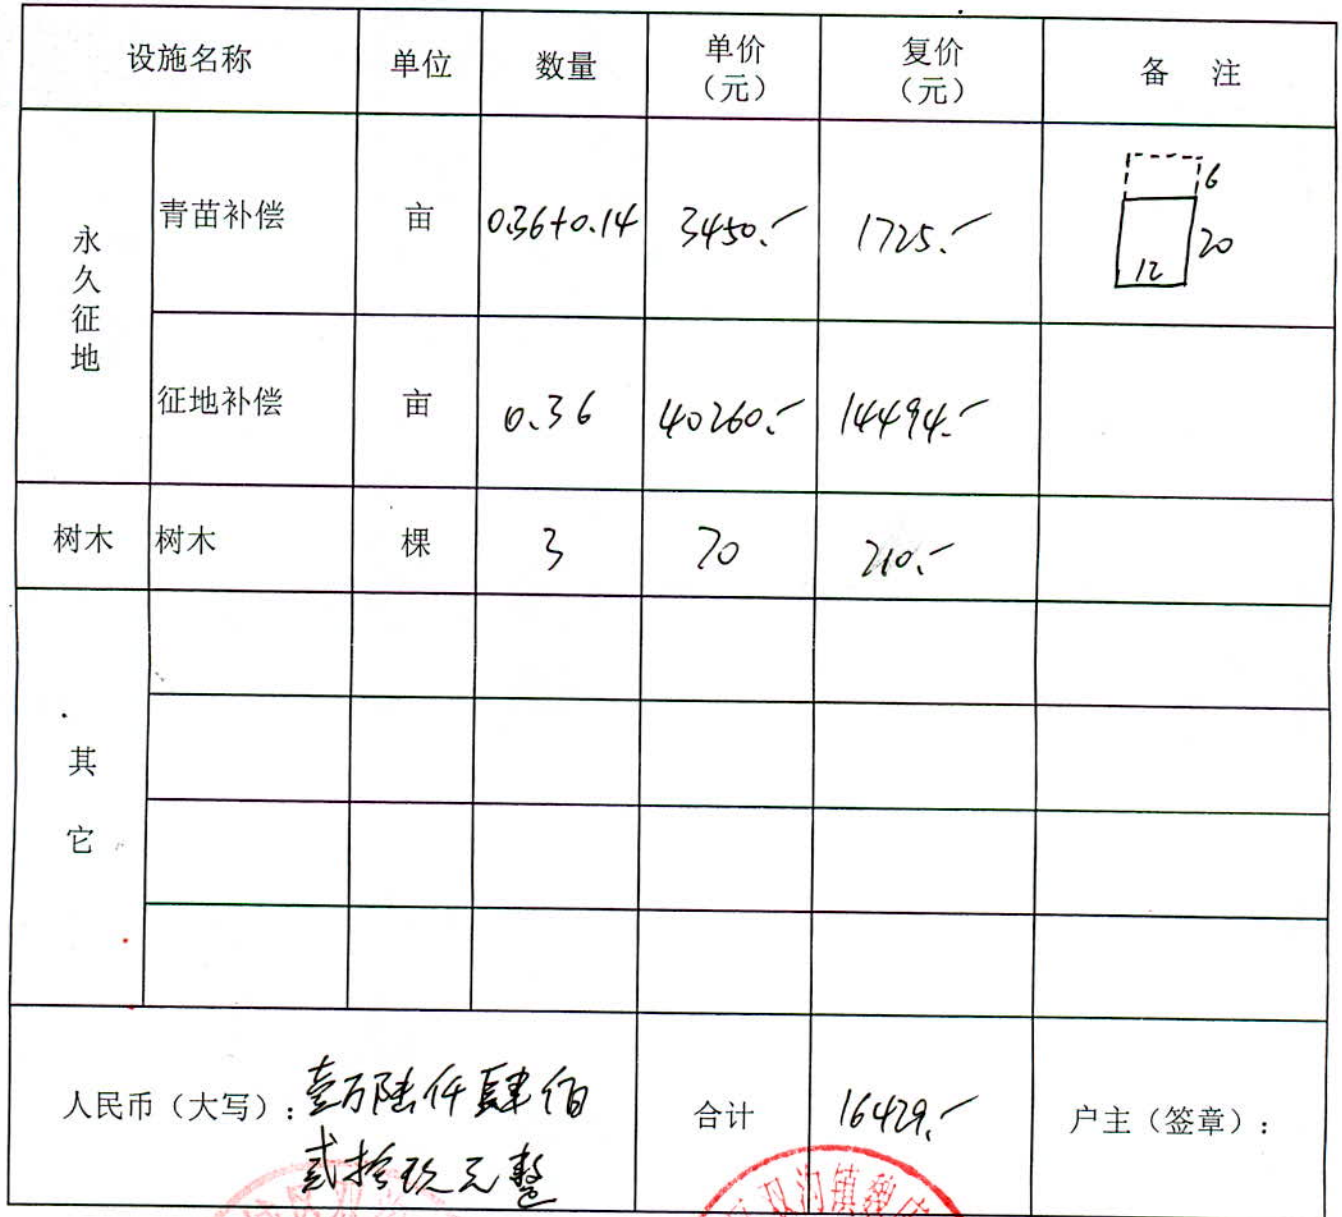 设施名称 单位 数量 单价（元） 复价（元） 备 注
永久征地 青苗补偿 亩 0.36+0.14 3450.- 1725.- 6 20 12
征地补偿 亩 0.36 40260.- 14494.-
树木 树木 棵 3 70 210.-
其它
人民币（大写）：壹万陆仟肆佰 合计 16429.- 户主（签章）：
贰拾玖元整
双沟镇